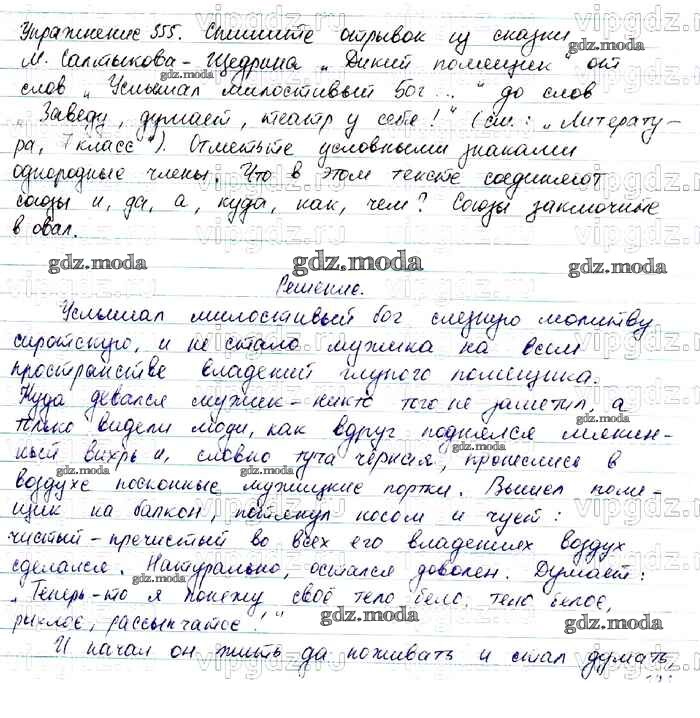 Упражнение 355. Спишите отрывок из сказки
М. Салтыкова-Щедрина „Дикий помещик" от
слов „Услышал милостивый бог..." до слов
„Заведу, думает, театр у себя!" (см.: „Литерату-
ра, 7 класс"). Отметьте условными знаками
однородные члены. Что в этом тексте соединяют
союзы и, да, а, куда, как, чем? Союзы заключите
в овал.
Решение.
Услышал милостивый бог слезную молитву
сиротскую, и не стало мужика на всем
пространстве владений глупого помещика.
Куда девался мужик - никто того не заметил, а
только видели люди, как вдруг поднялся мякин-
ный вихрь и, словно туча черная, пронеслись в
воздухе посконные мужицкие портки. Вышел поме-
щик на балкон, потянул носом и чует:
чистый-пречистый во всех его владениях воздух
сделался. Натурально, остался доволен. Думает:
„Теперь-то я понежу своё тело бело, тело белое,
рыхлое, рассыпчатое!"
И начал он жить да поживать и стал думать,
gdz.moda
vipgdz.ru